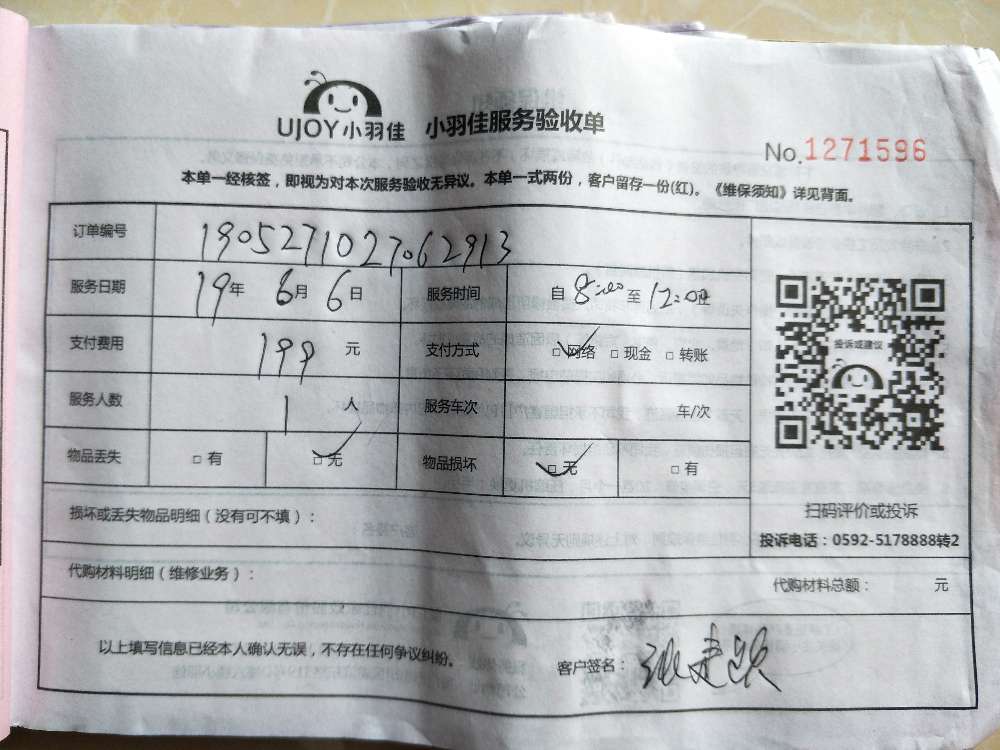 UJOY小羽佳 小羽佳服务验收单
No.1271596
本单一经核签，即视为对本次服务验收无异议。本单一式两份，客户留存一份(红)。《维保须知》详见背面。
订单编号 1905271027062913
服务日期 19年 6月 6日 服务时间 自 8:00 至 12:00
支付费用 199 元 支付方式 □网络 □现金 □转账
服务人数 1 人 服务车次 车/次
物品丢失 □有 □无 物品损坏 □无 □有
投诉或建议
扫码评价或投诉
投诉电话：0592-5178888转2
损坏或丢失物品明细（没有可不填）：
代购材料明细（维修业务）： 代购材料总额： 元
以上填写信息已经本人确认无误，不存在任何争议纠纷。 客户签名：